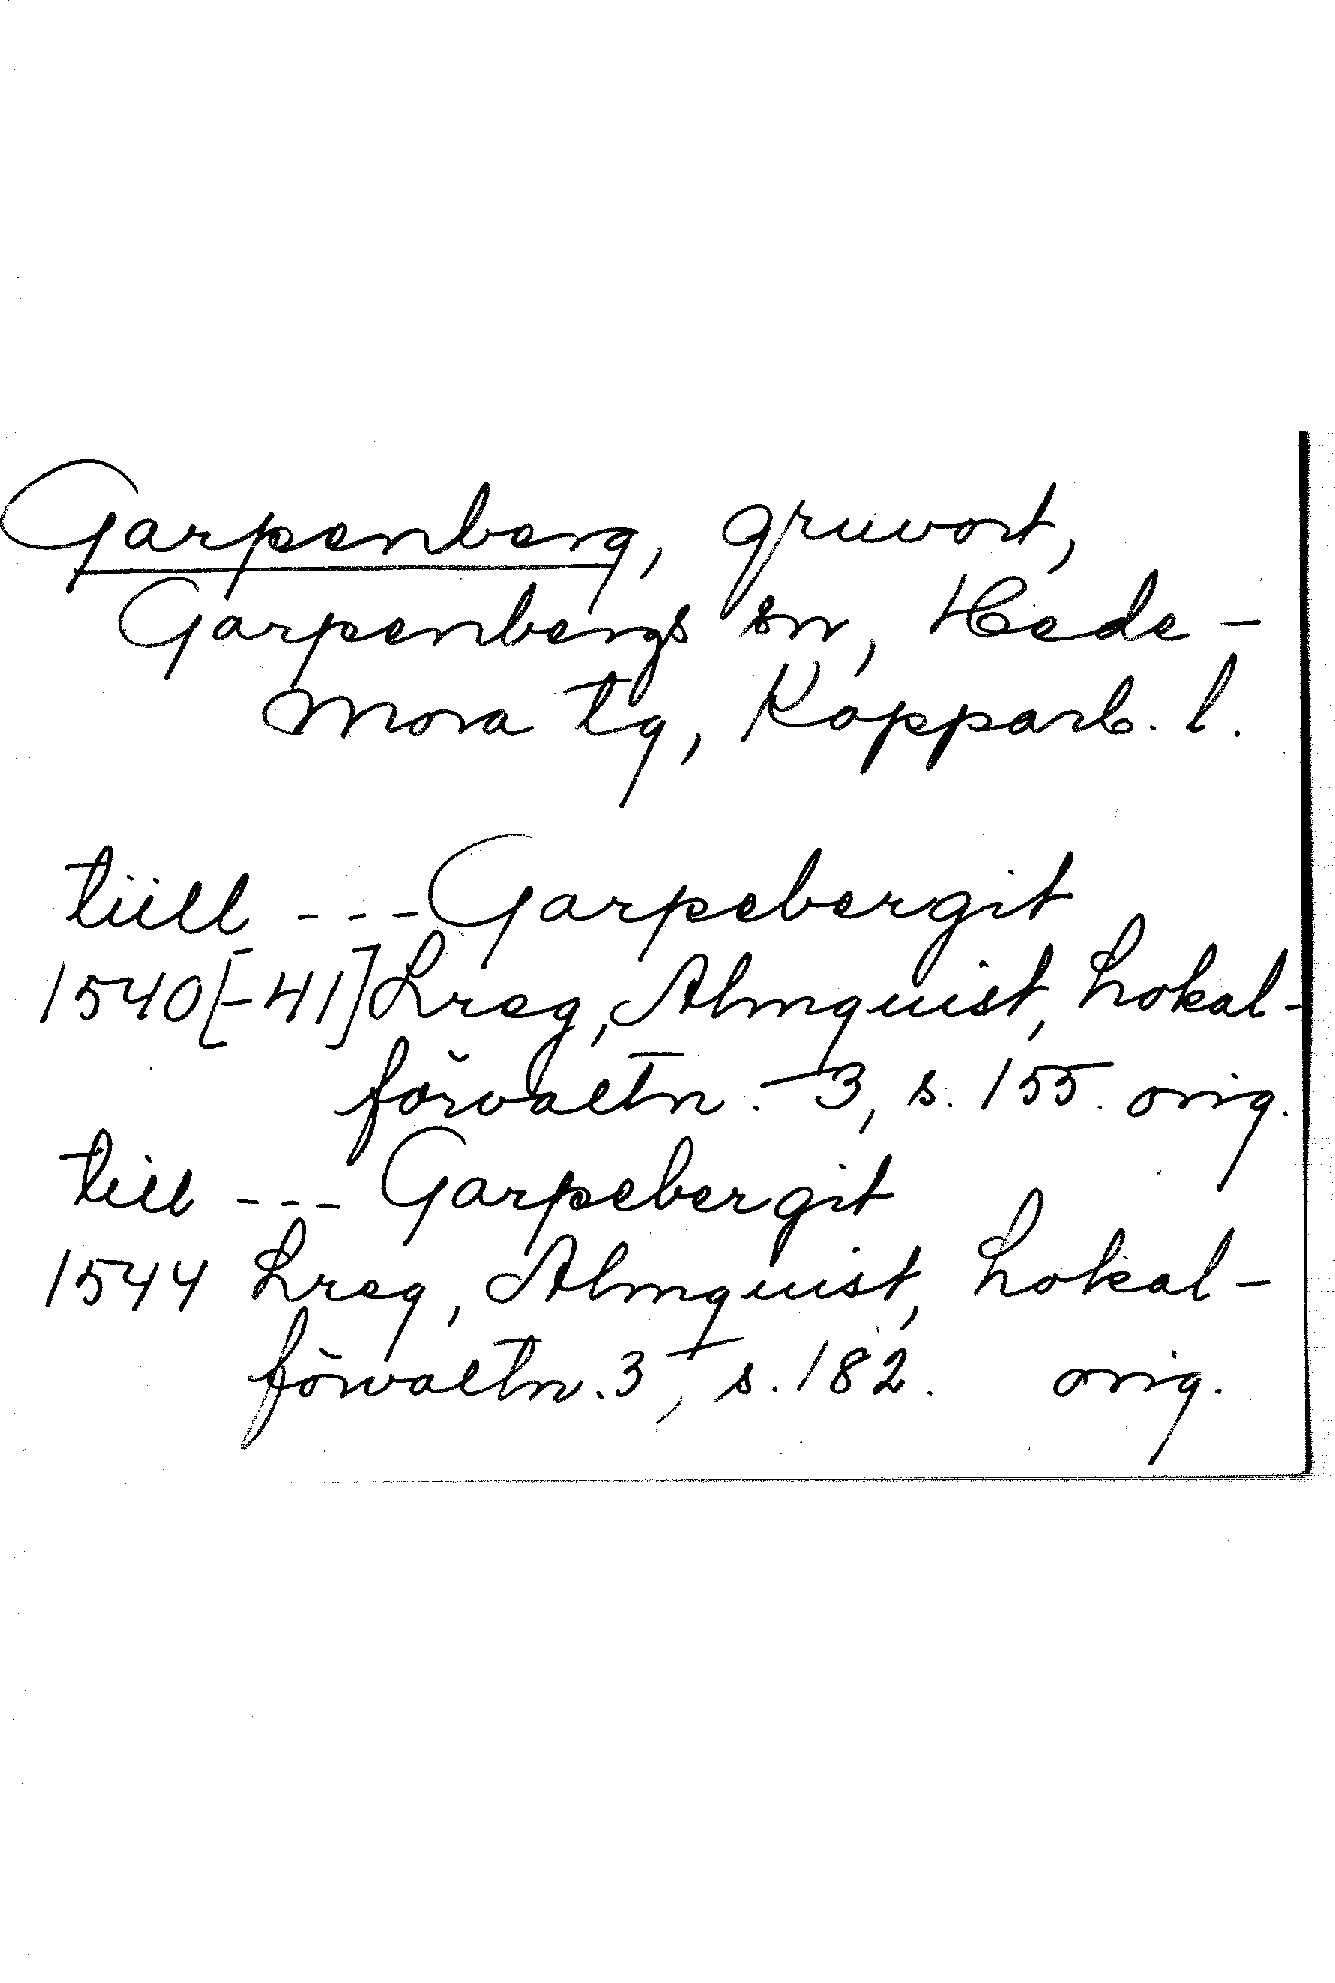 Garpenberg, gruvort,
Garpenbergs sn, Hede-
mora tg, Kopparb. l.
tiill --- Garpebergit
1540[-41] Lreg, Almquist, Lokal-
förvaltn. 3, s. 155. orig.
till --- Garpebergit
1544 Lreg, Almquist, Lokal-
förvaltn. 3, s. 182. orig.